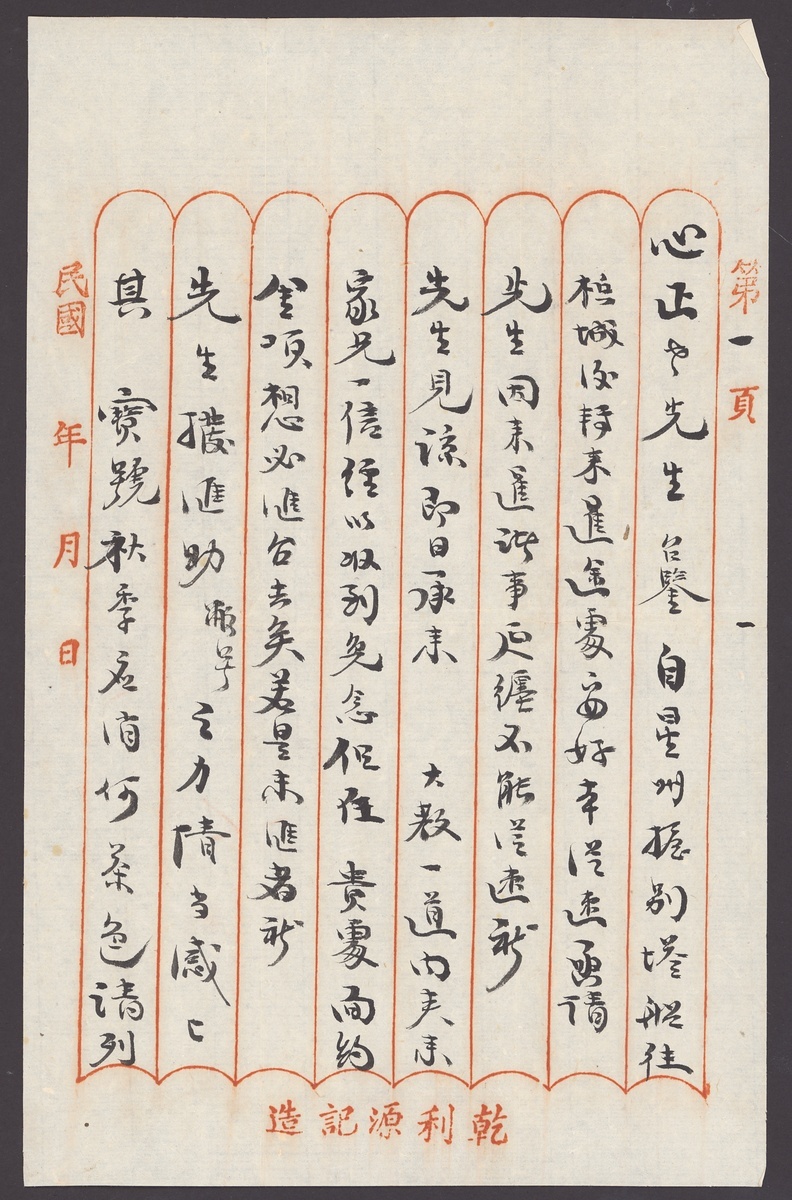 第一頁
心正老先生台鑒 自星洲握別搭船往
梹城後轉來暹途處安好本從速函請
先生因來暹諸事延纏不能從速祈
先生見諒即日承來 大教一道內夾來
家兄一信經以收到免念但在 貴處面約
金項想必匯台去矣若是未匯者祈
先生撥匯助敝号之力隋當感亡
其 寶號秋季居消何茶色請列
民國 年 月 日
乾利源記造